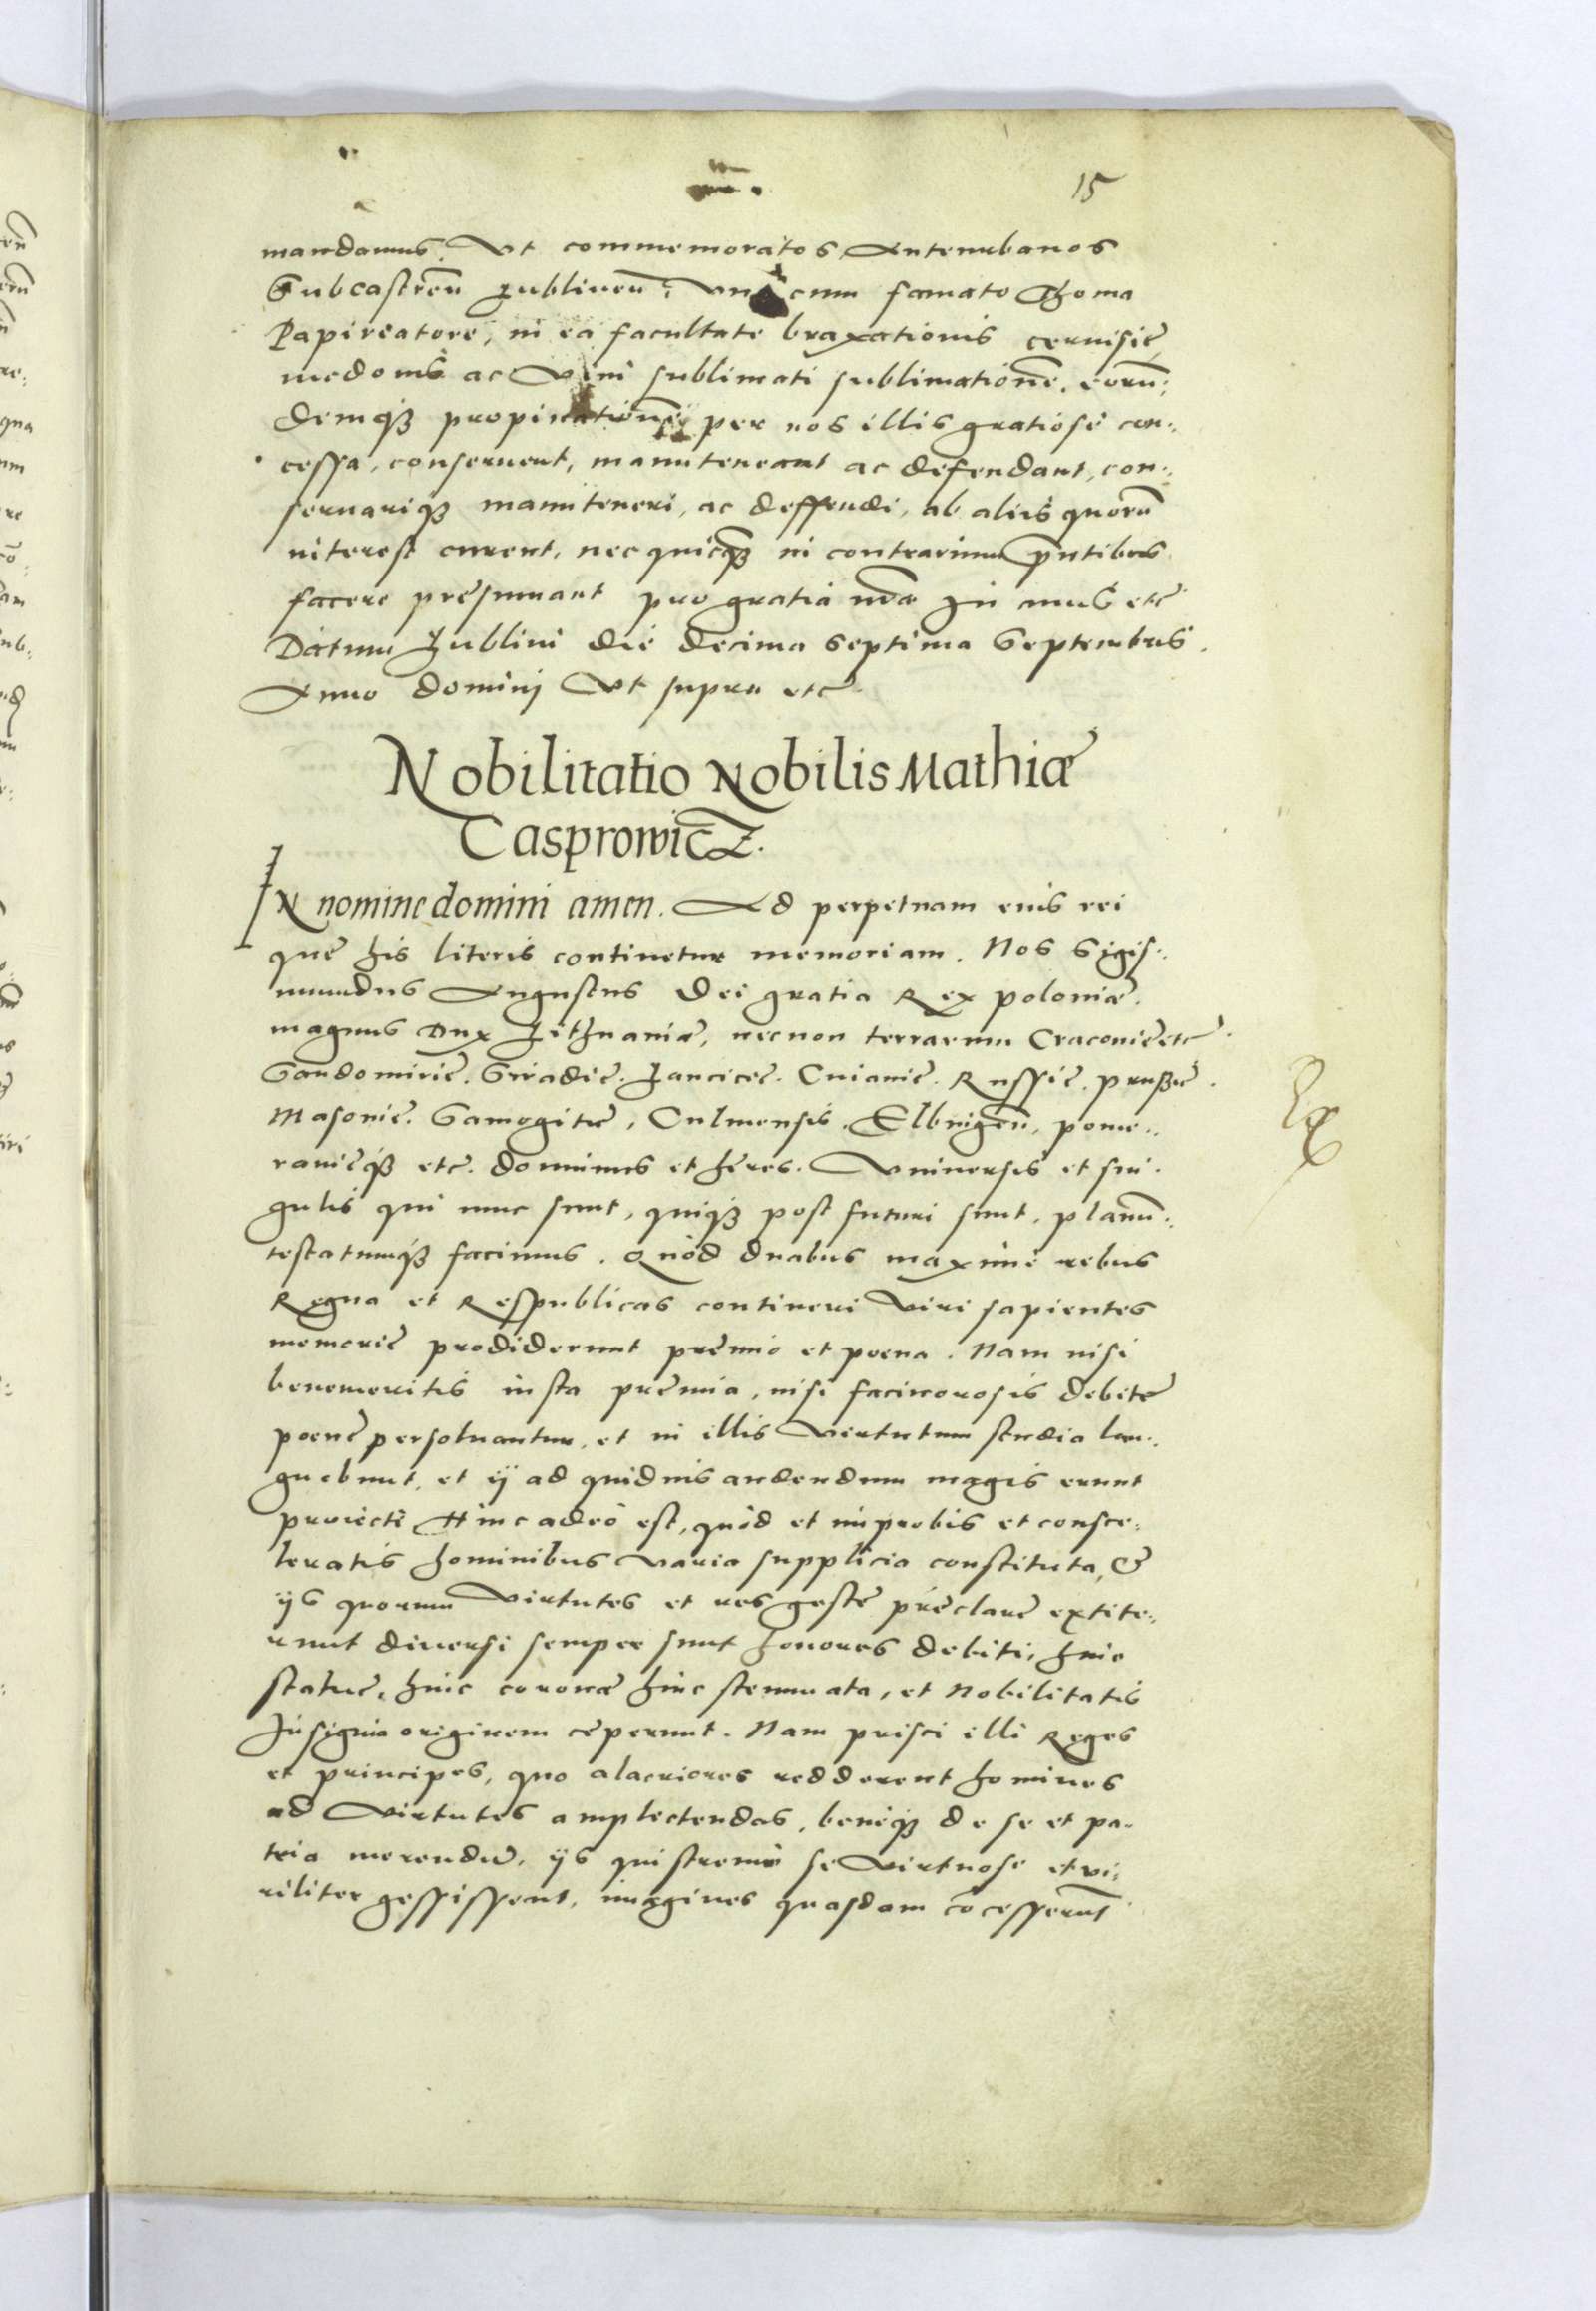 15
mandamus. Vt commemoratos Antenubanos
Subcastreñ Lublineñ: vna cum famato Thoma
Papireatore, in ea facultate braxationis ceruisię,
medonis ac Vini sublimati sublimationē. eorun:
demq3 propinationē per nos illis gratiosè con:
cessa, conseruent, manuteneant ac defendant, con:
seruariq3 manuteneri, ac deffendi, ab aliis quorū
interest curent, nec quicq3 in contrarium pñtibus
facere pręsumant pro gratia nrā In cuius etc
Datum Lublini die decima septima Septembris.
Anno dominj Vt supra etc.
Nobilitatio Nobilis Mathiæ
Casprowicz.
In nomine domini amen. Ad perpetuam eius rei
quę his literis continetur memoriam. Nos Sigis:
mundus Augustus Dei gratia Rex poloniæ.
magnus Dux Lithuaniæ, necnon terrarum Cracouię etc
Sandomirię. Siradię. Lancicię. Cuiauię. Russię. prussię.
Masouię. Samogitię, Culmensis. Elbingeñ. pome:
ranięq3 etc. dominus et hęres. Vniuersis et sin:
gulis qui nunc sunt, quiq3 post futuri sunt, planū:
testatumq3 facimus. Quòd duabus maximè rebus
Regna et Respublicas contineri Viri sapientes
memorię prodiderunt pręmio et poena. Nam nisi
benemeritis iusta pręmia, nisi facinorosis debitę
poenę persoluantur, et in illis Virtutum studia lan:
guebunt, et ij ad quiduis audendum magis erunt
proiecti Hinc adeò est, quòd et improbis et consce:
leratis hominibus varia supplicia constituta, &
ijs quorum Virtutes et res gestę pręclarę extite:
runt diuersi semper sunt honores debiti, hinc
statuę, hinc coronæ hinc stemmata, et Nobilitatis
Insignia originem cęperunt. Nam prisci illi Reges
et principes, quo alacriores redderent homines
ad Virtutes amplectendas, beneq3 de se et pa:
tria merendū, ijs qui strenuè se Virtuose et vi:
riliter gessissent, imagines quasdam cōcesserunt